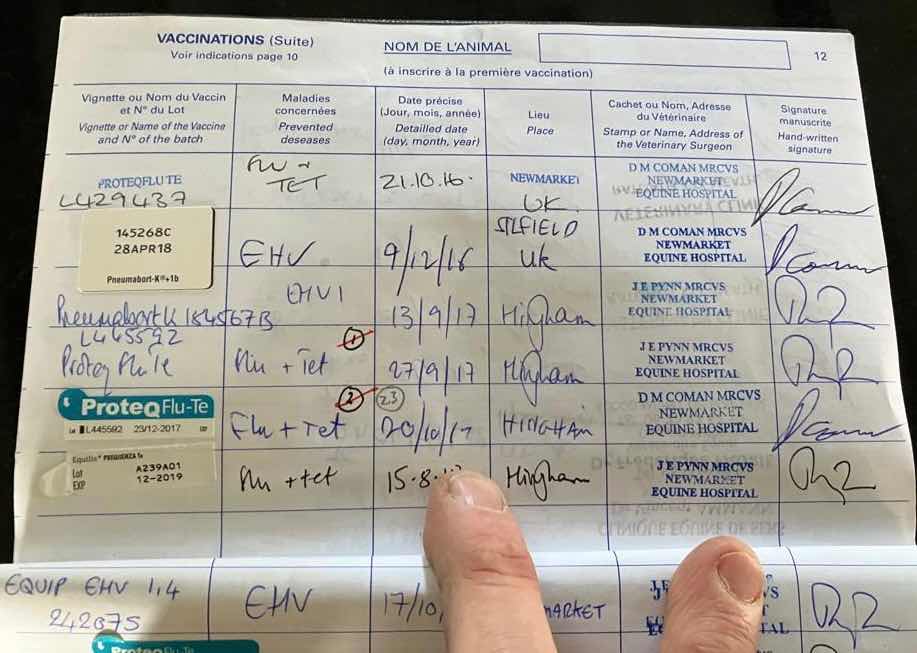 VACCINATIONS (Suite)
Voir indications page 10
NOM DE L'ANIMAL
(à inscrire à la première vaccination)
12
Vignette ou Nom du Vaccin
et N° du Lot
Vignette or Name of the Vaccine
and N° of the batch
Maladies
concernées
Prevented
deseases
Date précise
(Jour, mois, année)
Detailled date
(day, month, year)
Lieu
Place
Cachet ou Nom, Adresse
du Vétérinaire
Stamp or Name, Address of
the Veterinary Surgeon
Signature
manuscrite
Hand-written
signature
PROTEQFLUTE
L429437
FLU +
TET
21.10.16.
NEWMARKET
UK
D M COMAN MRCVS
NEWMARKET
EQUINE HOSPITAL
145268C
28APR18
Pneumabort-K®+1b
EHV
9/12/16
SILFIELD
UK
D M COMAN MRCVS
NEWMARKET
EQUINE HOSPITAL
Pneumabort K 184567B
EHV1
13/9/17
Hingham
J E PYNN MRCVS
NEWMARKET
EQUINE HOSPITAL
L445592
Proteq Flu Te
Flu + Tet
1
27/9/17
Hingham
J E PYNN MRCVS
NEWMARKET
EQUINE HOSPITAL
ProteQ Flu-Te
L445592 23/12/2017
Flu + Tet
2
23
20/10/17
HINGHAM
D M COMAN MRCVS
NEWMARKET
EQUINE HOSPITAL
Equilis® PREQUENZA Te
Lot A239A01
EXP 12-2019
Flu + tet
15.8.
Hingham
J E PYNN MRCVS
NEWMARKET
EQUINE HOSPITAL
CLINIQUE EQUINE DE
EQUIP EHV 1,4
242075
EHV
17/10/
MARKET
J E
VS
EQU
TAL
ProteQ Flu-Te